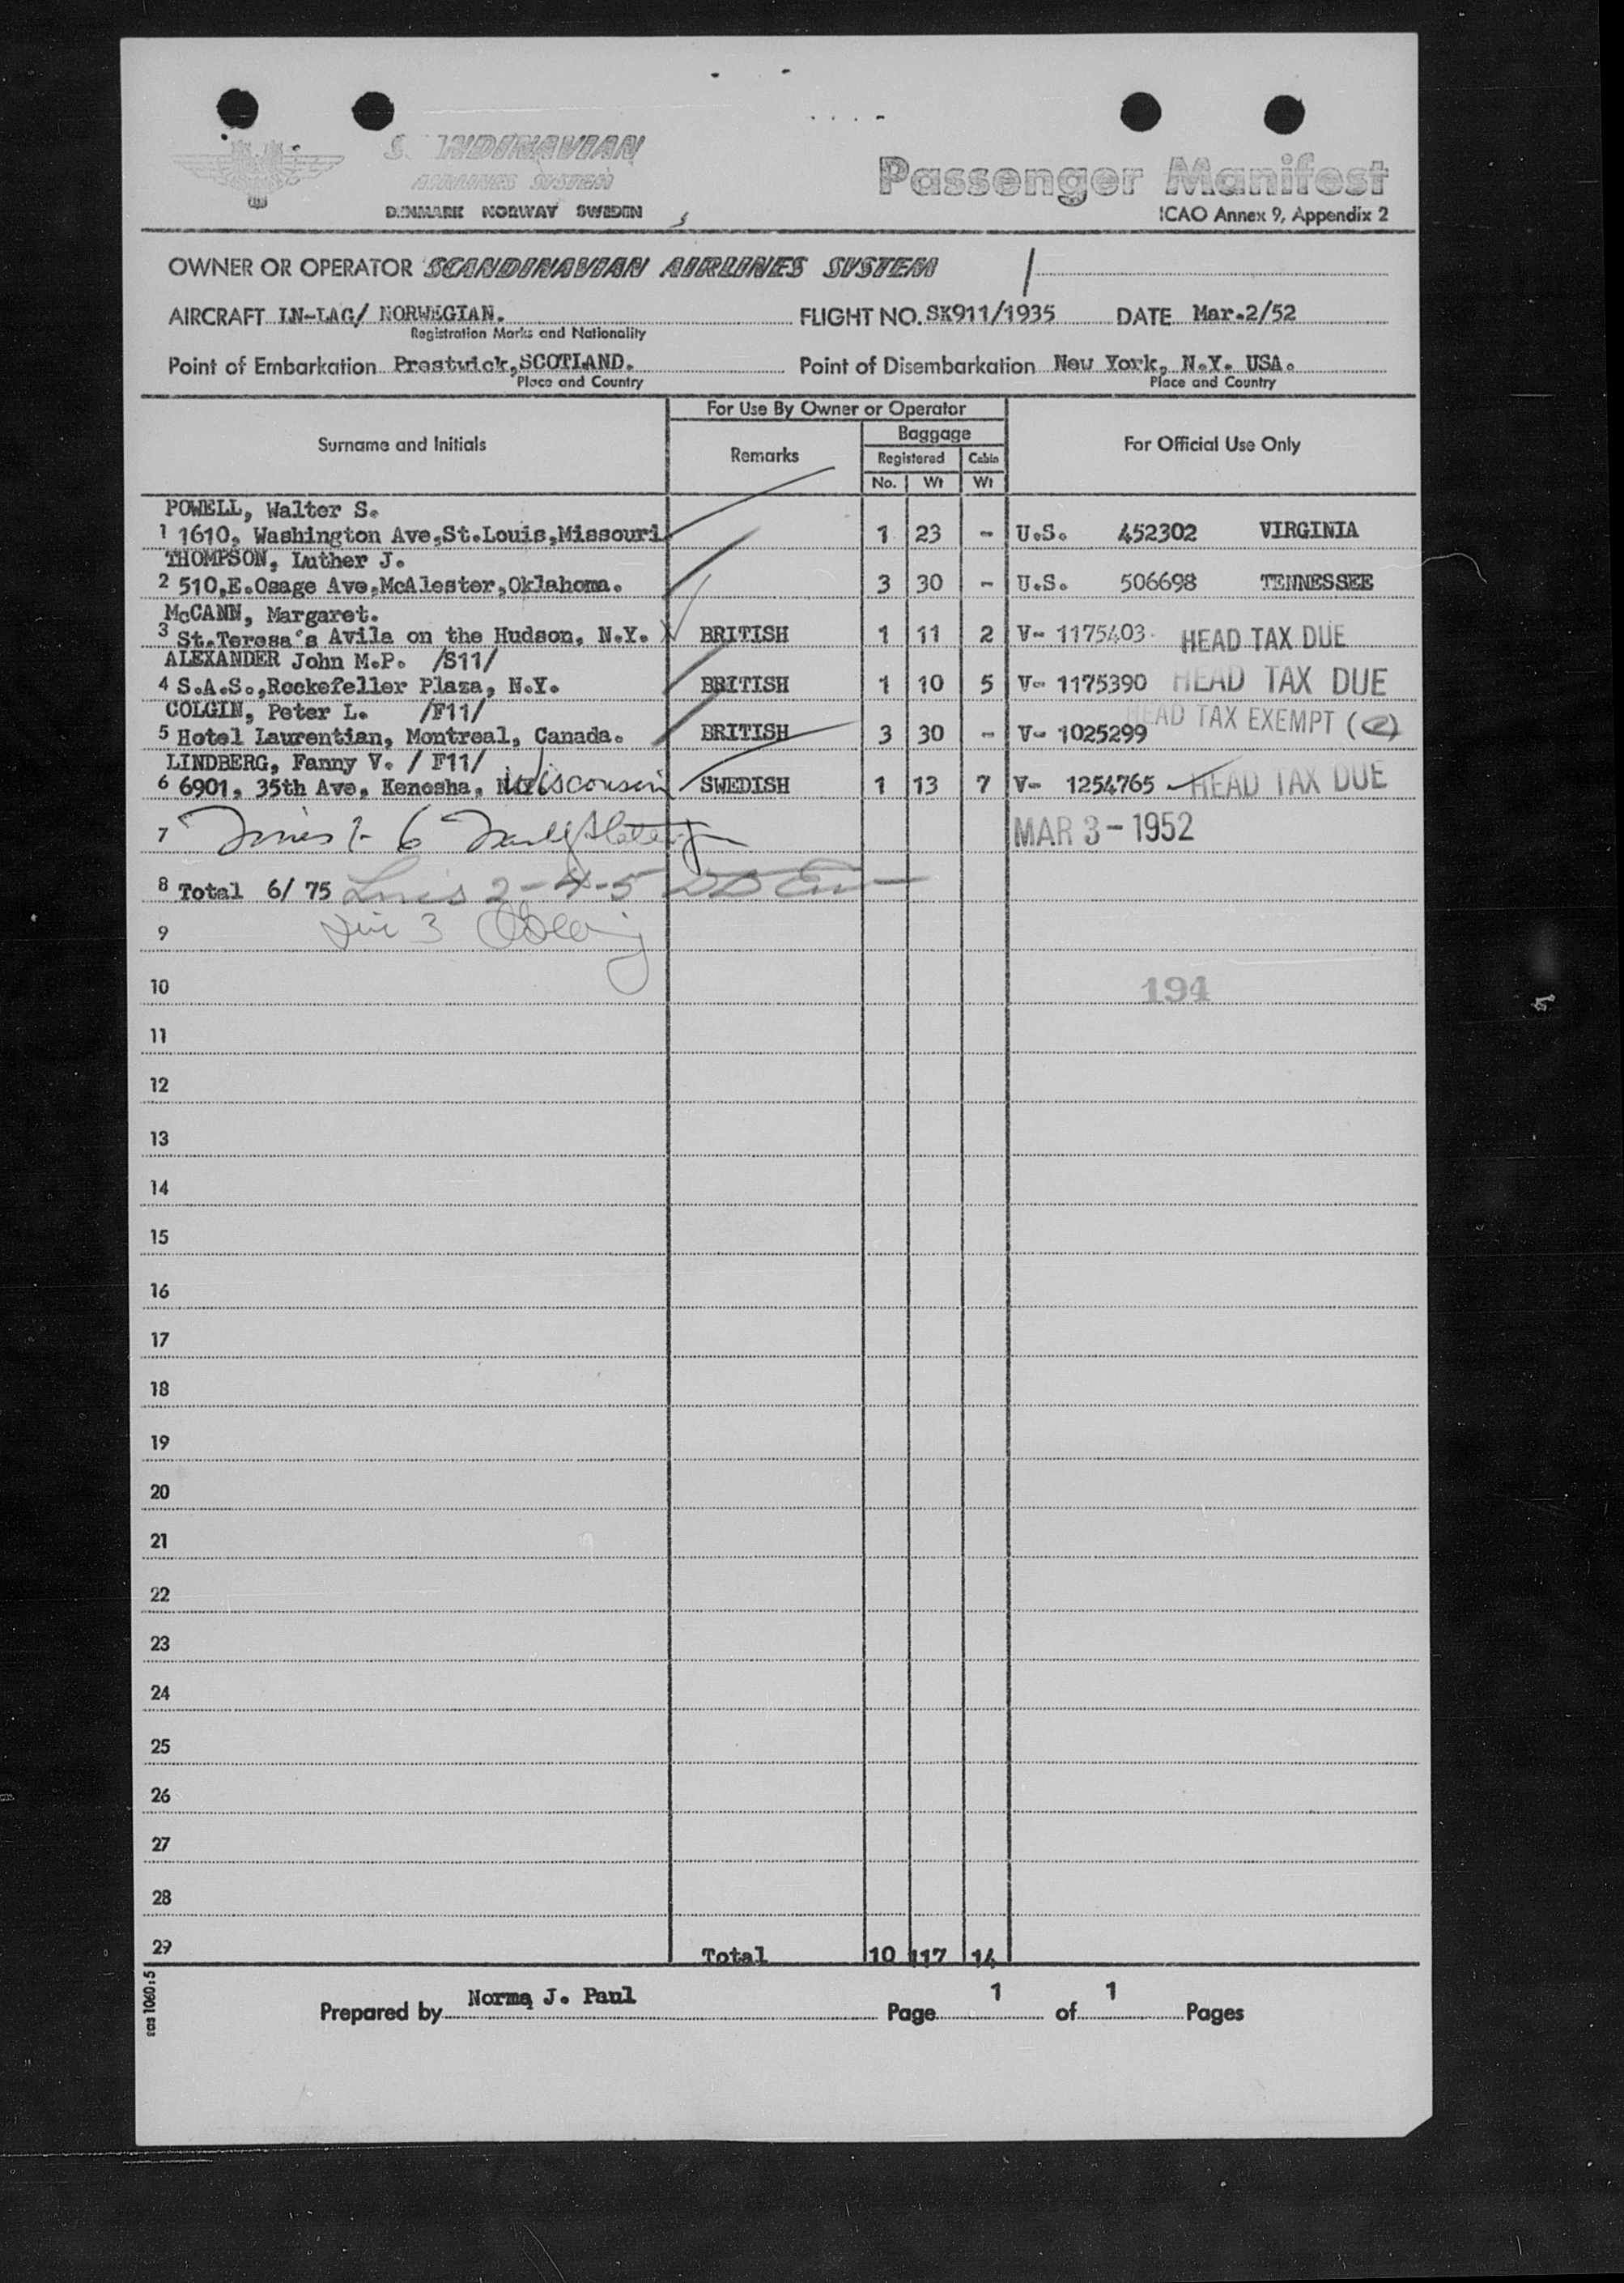 SCANDINAVIAN
AIRLINES SYSTEM
DENMARK NORWAY SWEDEN
Passenger Manifest
ICAO Annex 9, Appendix 2
OWNER OR OPERATOR SCANDINAVIAN AIRLINES SYSTEM
AIRCRAFT LN-LAG/ NORWEGIAN. FLIGHT NO. SK911/1935 DATE Mar.2/52
Registration Marks and Nationality
Point of Embarkation Prestwick, SCOTLAND. Point of Disembarkation New York, N.Y. USA.
Place and Country Place and Country
For Use By Owner or Operator
Surname and Initials Remarks Baggage For Official Use Only
Registered Cabin
No. Wt Wt
POWELL, Walter S.
1 1610, Washington Ave,St.Louis,Missouri 1 23 - U.S. 452302 VIRGINIA
THOMPSON, Luther J.
2 510,E.Osage Ave,McAlester,Oklahoma. 3 30 - U.S. 506698 TENNESSEE
McCANN, Margaret.
3 St.Teresa's Avila on the Hudson, N.Y. BRITISH 1 11 2 V- 1175403 HEAD TAX DUE
ALEXANDER John M.P. /S11/
4 S.A.S.,Rockefeller Plaza, N.Y. BRITISH 1 10 5 V- 1175390 HEAD TAX DUE
COLGIN, Peter L. /F11/
5 Hotel Laurentian, Montreal, Canada. BRITISH 3 30 - V- 1025299 HEAD TAX EXEMPT (2)
LINDBERG, Fanny V. / F11/
6 6901, 35th Ave, Kenosha, Wisconsin SWEDISH 1 13 7 V- 1254765 HEAD TAX DUE
7 Lines 1- 6 MAR 3-1952
8 Total 6/ 75 Lines 2-4-5
9 Line 3
10 194
11
12
13
14
15
16
17
18
19
20
21
22
23
24
25
26
27
28
29 Total 10 117 14
sas 1060:5
Prepared by Norma J. Paul Page 1 of 1 Pages